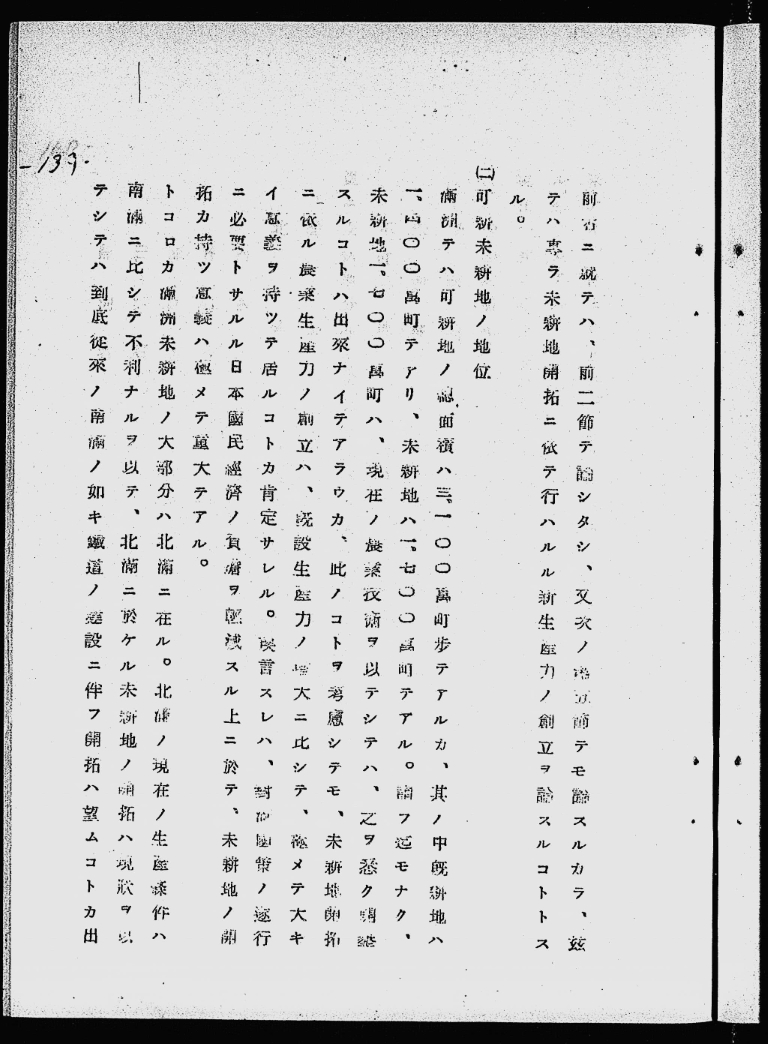 前者ニ就テハ、前二節テ論シタシ、又次ノ第五節テモ論スルカラ、玆
テハ專ラ未耕地開拓ニ依テ行ハルル新生產力ノ創立ヲ論スルコトトス
ル。
㈡可耕未耕地ノ地位
滿洲テハ可耕地ノ總面積ハ三、一〇〇萬町步テアルカ、其ノ中旣耕地ハ
一、四〇〇萬町テアリ、未耕地ハ一、七〇〇萬町テアル。謂フ迄モナク、
未耕地一、七〇〇萬町ハ、現在ノ農業技術ヲ以テシテハ、之ヲ悉ク開墾
スルコトハ出來ナイテアラウカ、此ノコトヲ考慮シテモ、未耕地開拓
ニ依ル農業生產力ノ創立ハ、旣設生產力ノ增大ニ比シテ、極メテ大キ
イ意義ヲ持ツテ居ルコトカ肯定サレル。換言スレハ、對滿國策ノ遂行
ニ必要トサルル日本國民經濟ノ負擔ヲ輕減スル上ニ於テ、未耕地ノ開
拓カ持ツ意義ハ極メテ重大テアル。
トコロカ滿洲未耕地ノ大部分ハ北滿ニ在ル。北滿ノ現在ノ生產條件ハ
南滿ニ比シテ不利ナルヲ以テ、北滿ニ於ケル未耕地ノ開拓ハ現狀ヲ以
テシテハ到底從來ノ南滿ノ如キ鐵道ノ建設ニ伴フ開拓ハ望ムコトカ出
-133-